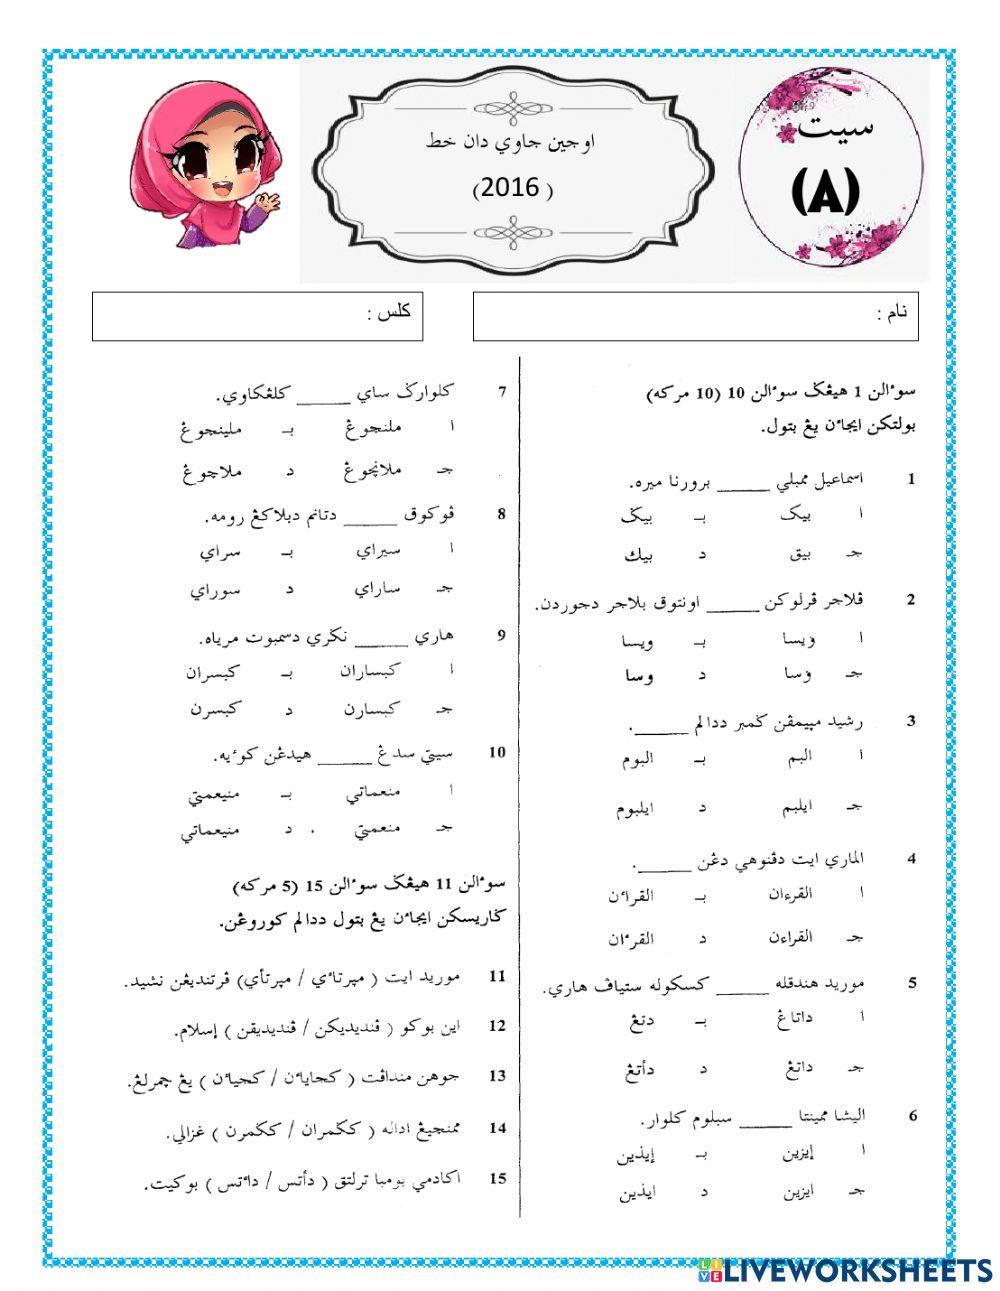 اوجين جاوي دان خط
(2016 )
سيت
(A)
نام :
کلس :
سوءالن 1 هيڠݢ سوءالن 10 (10 مرکه)
بولتکن ايجاءن يڠ بتول.
1 اسماعيل ممبلي _____ برورنا ميره.
ا بيک بـ بيݢ
جـ بيق د بيك
2 ڤلاجر ڤرلوکن _____ اونتوق بلاجر دجوردن.
ا ۏيسا بـ ويسا
جـ ۏسا د وسا
3 رشيد مڽيمڤن ݢمبر ددالم _____.
ا البم بـ البوم
جـ ايلبم د ايلبوم
4 الماري ايت دڤنوهي دڠن _____.
ا القرءان بـ القراءن
جـ القراءن د القرءان
5 موريد هندقله _____ کسکوله ستياڤ هاري.
ا داتاڠ بـ دتڠ
جـ داتڠ د دأتڠ
6 اليشا ممينتا _____ سبلوم کلوار.
ا إيزين بـ إيذين
جـ ايزين د ايذين
7 کلوارݢ ساي _____ کلڠکاوي.
ا ملنچوڠ بـ ملينچوڠ
جـ ملانچوڠ د ملاچوڠ
8 ڤوکوق _____ دتانم دبلاکڠ رومه.
ا سيراي بـ سراي
جـ ساراي د سوراي
9 هاري _____ نݢري دسمبوت مرياه.
ا کبساران بـ کبسران
جـ کبسارن د کبسرن
10 سيتي سدڠ _____ هيدڠن کوءيه.
ا منعماتي بـ منيعمتي
جـ منعمتي د منيعماتي
سوءالن 11 هيڠݢ سوءالن 15 (5 مرکه)
ݢاريسکن ايجاءن يڠ بتول ددالم کوروڠن.
11 موريد ايت ( مڽرتاءي / مڽرتأي) ڤرتنديڠن نشيد.
12 اين بوکو ( ڤنديديکن / ڤنديديقن ) إسلام.
13 جوهن منداڤت ( کجاياءن / کجياءن ) يڠ چمرلڠ.
14 ممنچيڠ اداله ( کݢمران / کݢمرن ) غزالي.
15 اکادمي بومبا ترلتق ( دأتس / داءتس ) بوکيت.
LIVEWORKSHEETS